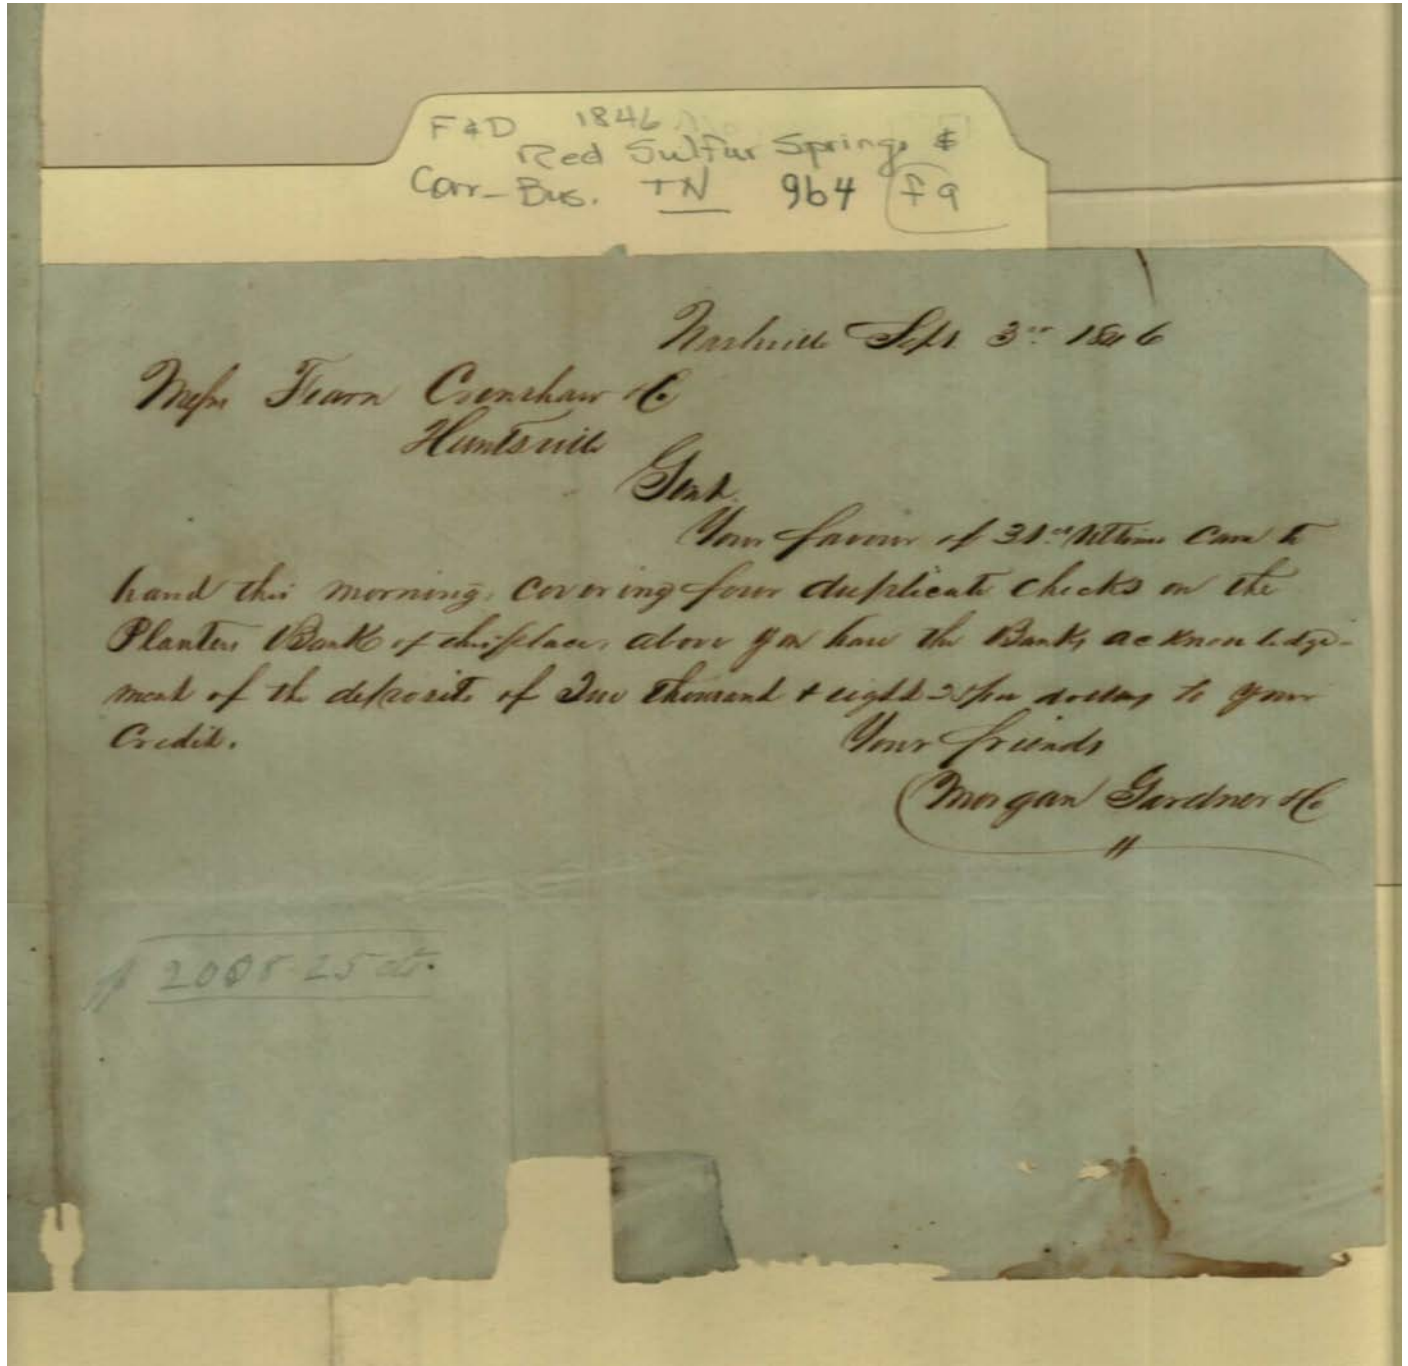 F&D 1846
Red Sulfur Springs $
Corr-Bus. TN 964 f9
Nashville Sept. 3rd 1846
Messrs Fearn Crenshaw & Co
Huntsville
Gent.
Your favour of 31st Ultimo Came to
hand this morning, covering four duplicate checks on the
Planters Bank of this place, above you have the Banks acknowledge-
ment of the deposite of Two thousand & eight 25/100 dollars to your
Credit.
Your friends
Morgan Gardner & Co
$ 2008.25 cts.